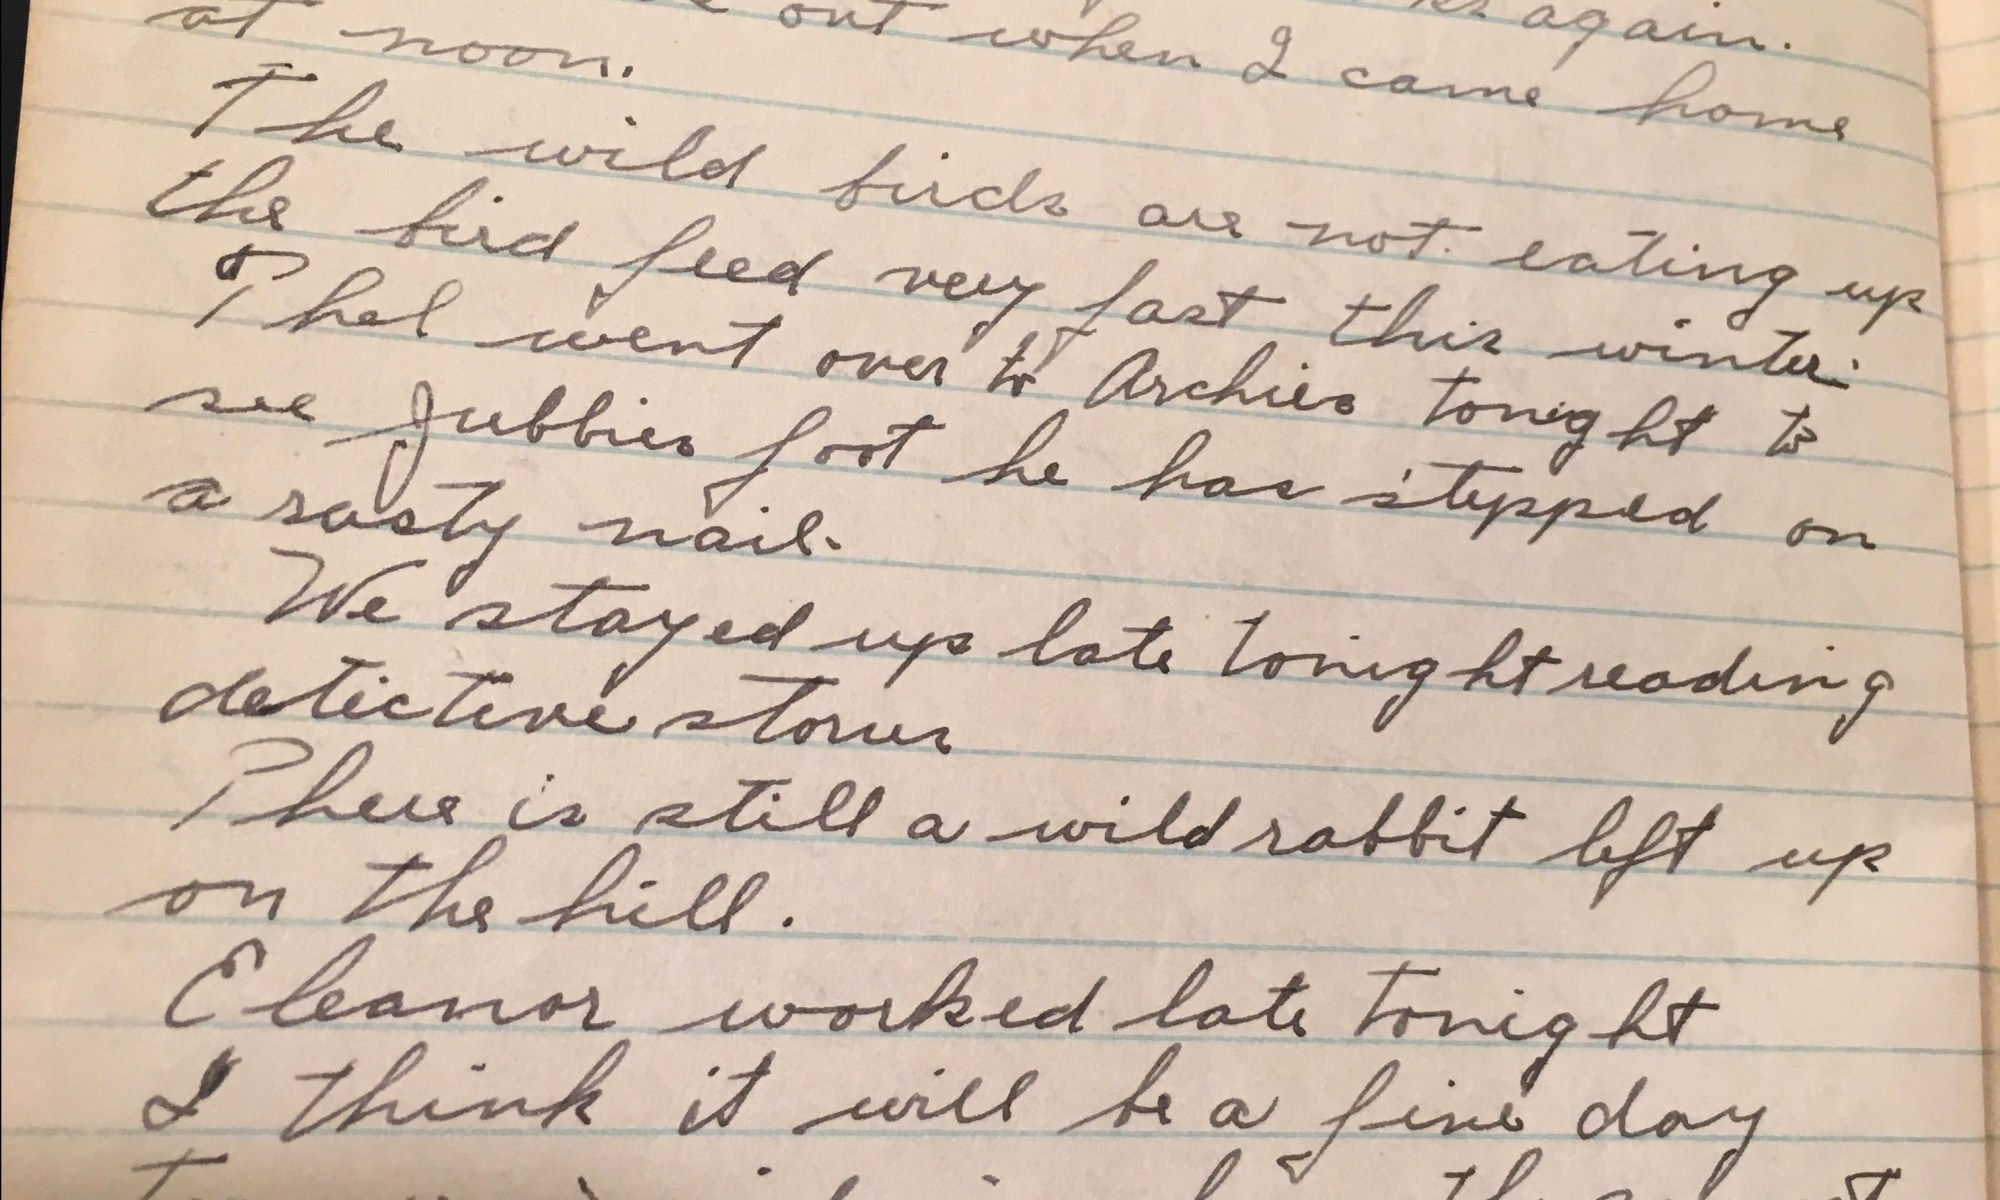 again.
out when I came home
at noon.
The wild birds are not eating up
the bird feed very fast this winter.
Thel went over to Archies tonight to
see Jubbies foot he has stepped on
a rusty nail.
We stayed up late tonight reading
detective stories
There is still a wild rabbit left up
on the hill.
Eleanor worked late tonight
I think it will be a fine day